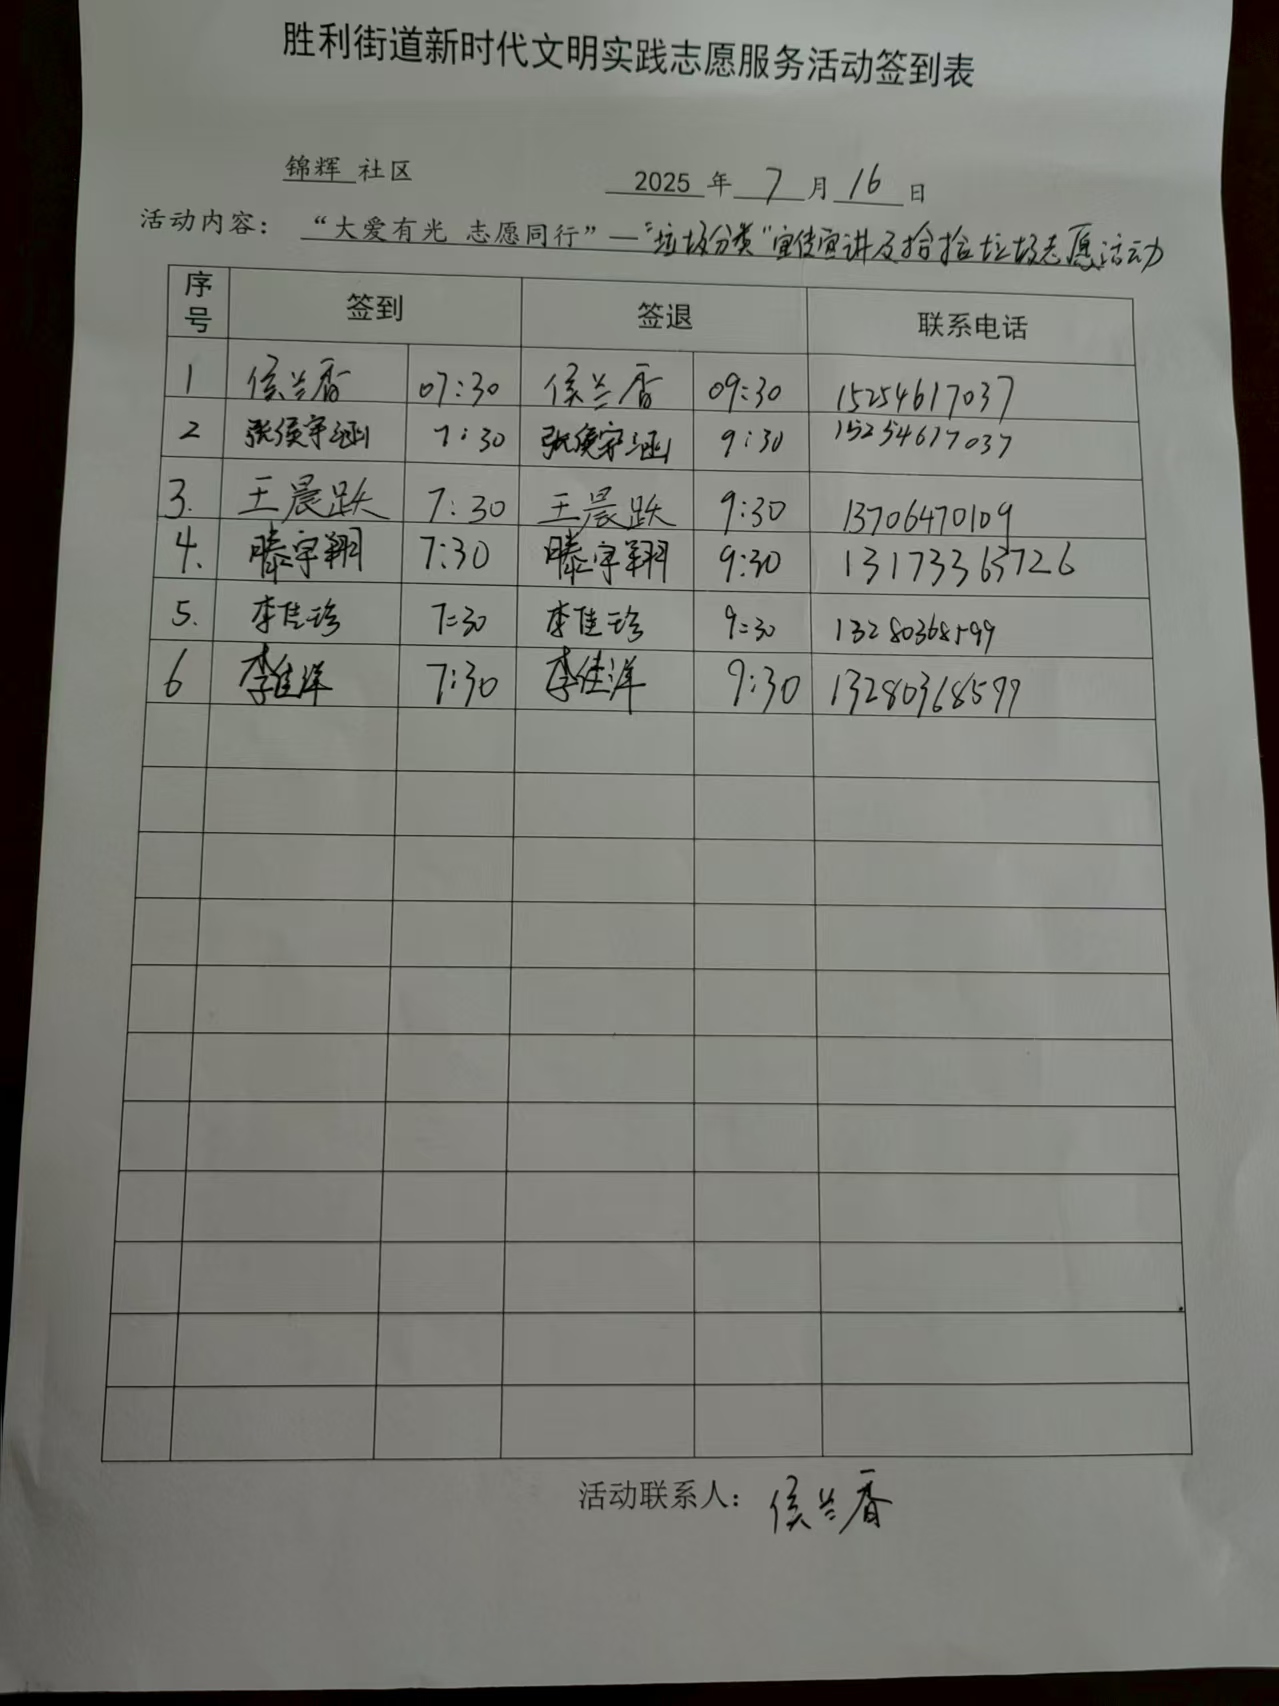 胜利街道新时代文明实践志愿服务活动签到表
锦辉 社区 2025 年 7 月 16 日
活动内容: “大爱有光 志愿同行”—“垃圾分类”宣传宣讲及捡拾垃圾志愿活动
序号 签到 签退 联系电话
1 侯兰香 07:30 侯兰香 09:30 15254617037
2 张侯宇涵 7:30 张侯宇涵 9:30 15254617037
3. 王晨跃 7:30 王晨跃 9:30 13706470109
4. 滕宇翔 7:30 滕宇翔 9:30 13173363726
5. 李佳珍 7:30 李佳珍 9:30 13280368599
6 李佳洋 7:30 李佳洋 9:30 13280368599
活动联系人: 侯兰香